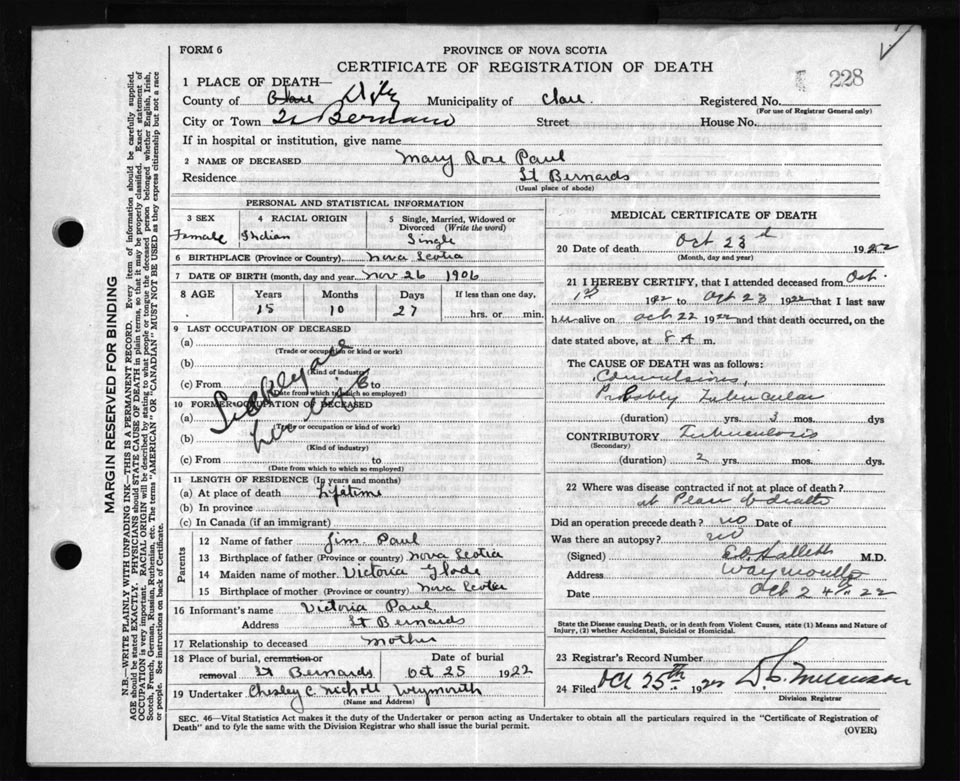 FORM 6
PROVINCE OF NOVA SCOTIA
CERTIFICATE OF REGISTRATION OF DEATH
228
1 PLACE OF DEATH—
County of Digby Municipality of Clare. Registered No.
(For use of Registrar General only)
City or Town St Bernard Street House No.
If in hospital or institution, give name
2 NAME OF DECEASED Mary Rose Paul
Residence St Bernards
(Usual place of abode)
PERSONAL AND STATISTICAL INFORMATION
3 SEX 4 RACIAL ORIGIN 5 Single, Married, Widowed or Divorced (Write the word)
Female Indian Single
6 BIRTHPLACE (Province or Country) Nova Scotia
7 DATE OF BIRTH (month, day and year) Nov 26 1906
8 AGE Years Months Days If less than one day,
15 10 27 hrs. or min.
9 LAST OCCUPATION OF DECEASED
(a)
(Trade or occupation or kind of work)
(b)
(Kind of industry)
(c) From to
(Date from which to which so employed)
10 FORMER OCCUPATION OF DECEASED
(a)
(Trade or occupation or kind of work)
(b)
(Kind of industry)
(c) From to
(Date from which to which so employed)
11 LENGTH OF RESIDENCE (In years and months)
(a) At place of death Lifetime
(b) In province
(c) In Canada (if an immigrant)
Parents
12 Name of father Jim Paul
13 Birthplace of father (Province or country) Nova Scotia
14 Maiden name of mother Victoria Glode
15 Birthplace of mother (Province or country) Nova Scotia
16 Informant's name Victoria Paul
Address St Bernards
17 Relationship to deceased Mother
18 Place of burial, cremation or removal St Bernards Date of burial Oct 25 1922
19 Undertaker Chesley C. Nichols, Weymouth
(Name and Address)
MEDICAL CERTIFICATE OF DEATH
20 Date of death Oct 23d 1922
(Month, day and year)
21 I HEREBY CERTIFY, that I attended deceased from Oct.
1st 1922 to Oct 23 1922 that I last saw
her alive on Oct 22 1922 and that death occurred, on the
date stated above, at 8 A m.
The CAUSE OF DEATH was as follows:
Convulsions,
Probably Tubercular
(duration) yrs. 3 mos. dys
CONTRIBUTORY Tuberculosis
(Secondary)
(duration) 2 yrs. mos. dys.
22 Where was disease contracted if not at place of death?
at Place of death
Did an operation precede death? no Date of
Was there an autopsy? no
(Signed) M.D.
Address Weymouth
Date Oct 24th 22
State the Disease causing Death, or in death from Violent Causes, state (1) Means and Nature of Injury, (2) whether Accidental, Suicidal or Homicidal.
23 Registrar's Record Number
24 Filed Oct 25th 1922
Division Registrar
SEC. 46—Vital Statistics Act makes it the duty of the Undertaker or person acting as Undertaker to obtain all the particulars required in the "Certificate of Registration of
Death" and to fyle the same with the Division Registrar who shall issue the burial permit.
(OVER)
MARGIN RESERVED FOR BINDING
N.B.—WRITE PLAINLY WITH UNFADING INK—THIS IS A PERMANENT RECORD. Every item of information should be carefully supplied.
AGE should be stated EXACTLY. PHYSICIANS should STATE CAUSE OF DEATH in plain terms, so that it may be properly classified. Exact statement of
OCCUPATION is very important. RACIAL ORIGIN will be described by stating to what people or tongue the deceased person belonged whether English, Irish,
Scotch, French, German, Russian, Ruthenian, etc. The terms "AMERICAN" or "CANADIAN" MUST NOT BE USED as they express citizenship but not a race
or people. See instructions on back of Certificate.